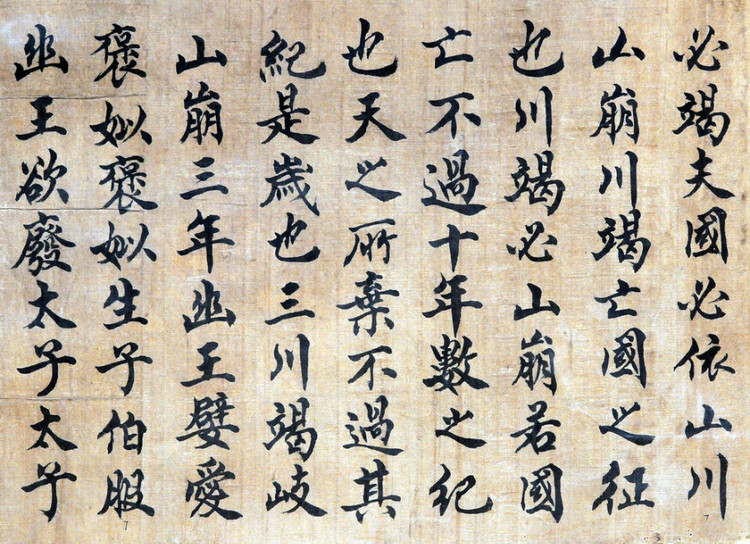 必竭夫國必依山川
山崩川竭亡國之征
也川竭必山崩若國
亡不過十年數之紀
也天之所棄不過其
紀是歲也三川竭岐
山崩三年幽王嬖愛
褒姒褒姒生子伯服
幽王欲廢太子太子
7
7